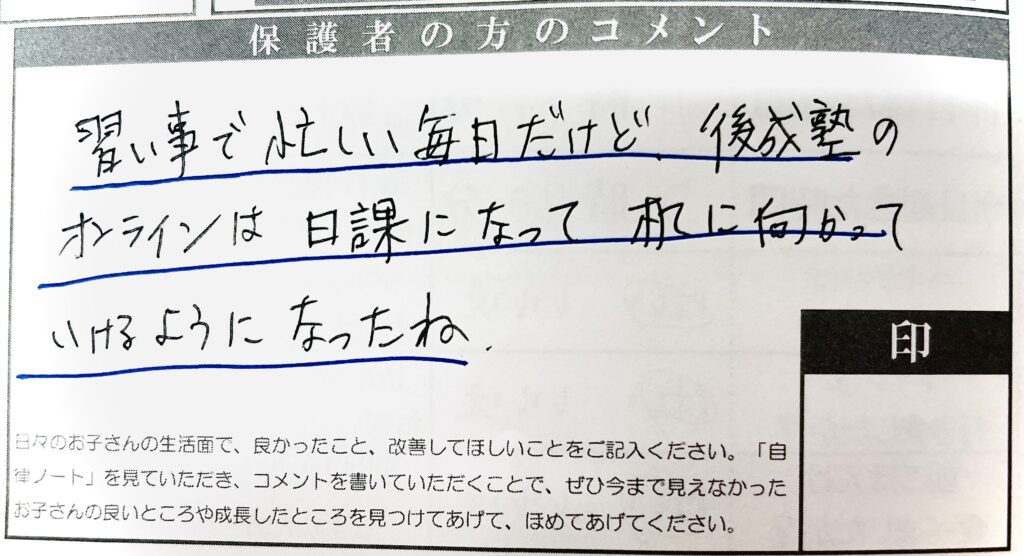 保護者の方のコメント
習い事で忙しい毎日だけど、後成塾の
オンラインは日課になって机に向かって
いけるようになったね.
印
日々のお子さんの生活面で、良かったこと、改善してほしいことをご記入ください。「自
律ノート」を見ていただき、コメントを書いていただくことで、ぜひ今まで見えなかった
お子さんの良いところや成長したところを見つけてあげて、ほめてあげてください。